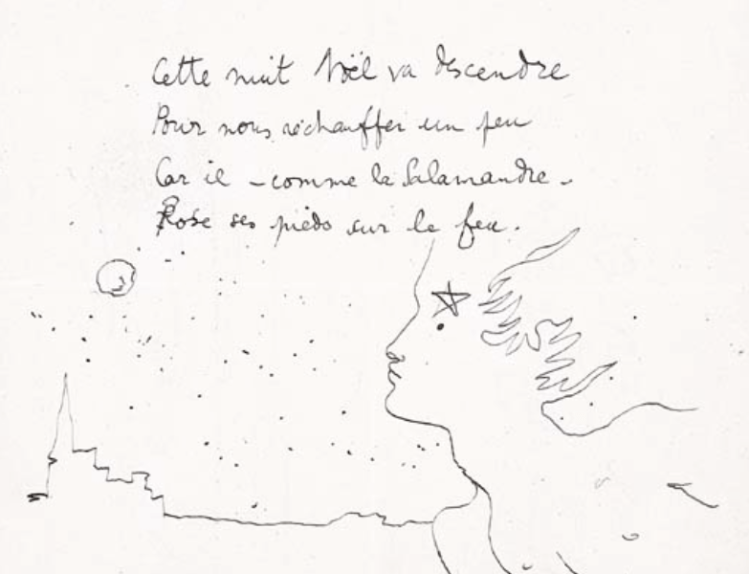 Cette nuit Noël va descendre
Pour nous réchauffer un peu
Car il – comme la Salamandre –
Pose ses pieds sur le feu.